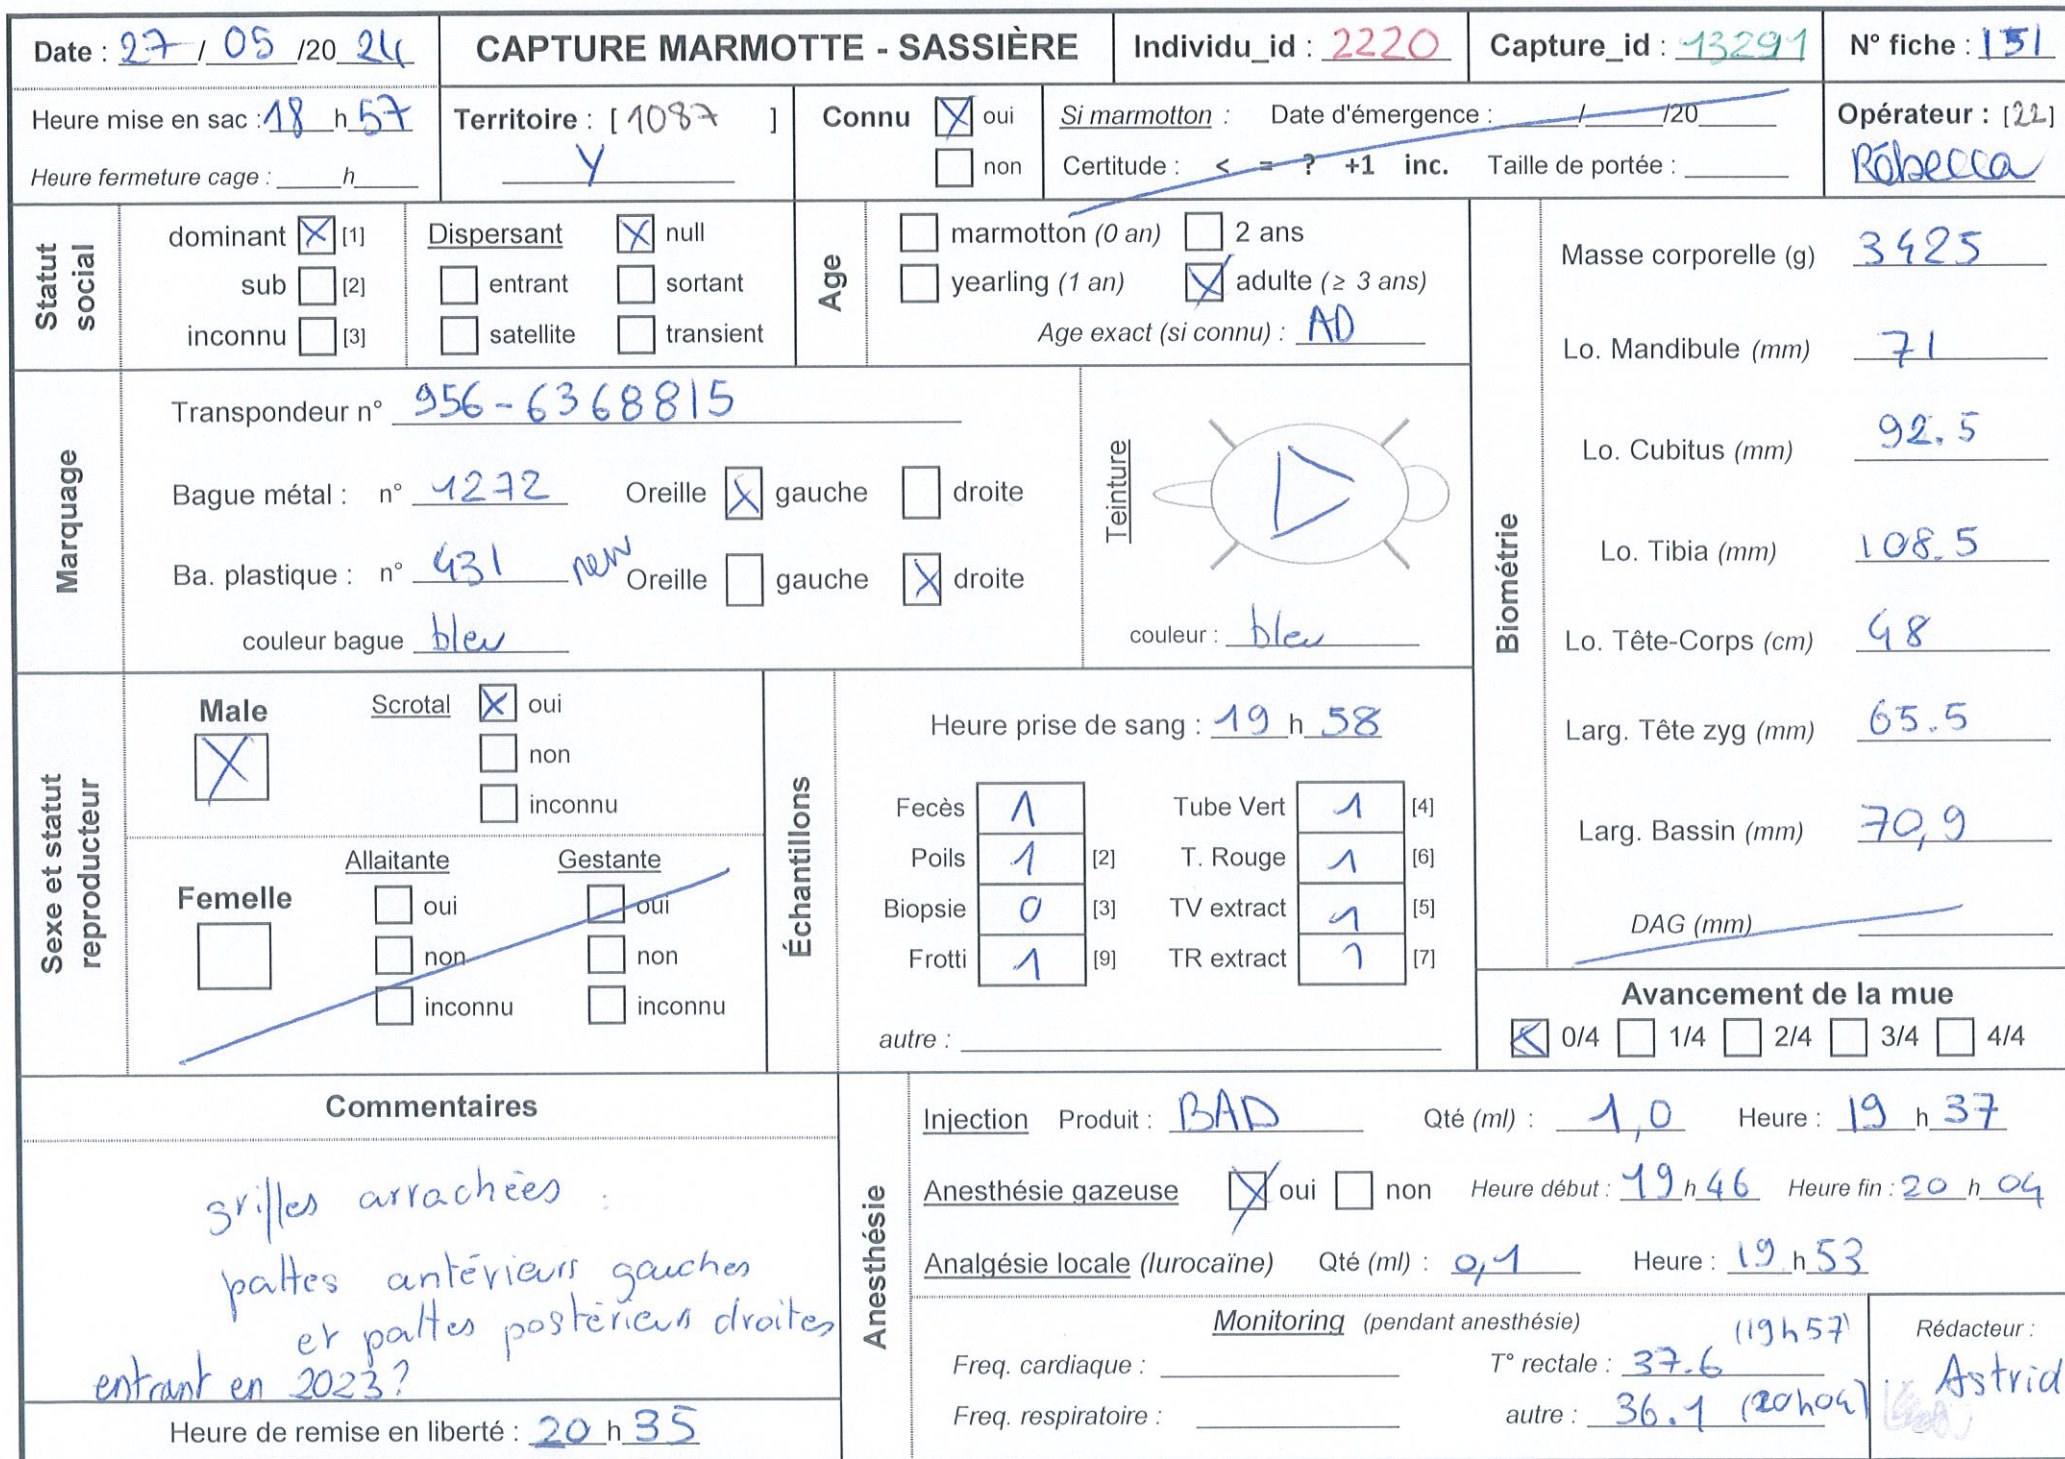 Date : 27 / 05 /20 24
CAPTURE MARMOTTE - SASSIÈRE
Individu_id : 2220
Capture_id : 13291
N° fiche : 151
Heure mise en sac : 18 h 57
Heure fermeture cage : ____h____
Territoire : [ 1087 ]
Y
Connu
oui
non
Si marmotton : Date d'émergence : ____/____/20____
Certitude : < = ? +1 inc. Taille de portée : ____
Opérateur : [22]
Rébecca
Statut social
dominant [1]
sub [2]
inconnu [3]
Dispersant
null
entrant
sortant
satellite
transient
Age
marmotton (0 an)
2 ans
yearling (1 an)
adulte (≥ 3 ans)
Age exact (si connu) : AD
Marquage
Transpondeur n° 956-6368815
Bague métal : n° 1272 Oreille gauche droite
Ba. plastique : n° 431 new Oreille gauche droite
couleur bague bleu
Teinture
couleur : bleu
Biométrie
Masse corporelle (g) 3425
Lo. Mandibule (mm) 71
Lo. Cubitus (mm) 92.5
Lo. Tibia (mm) 108.5
Lo. Tête-Corps (cm) 48
Larg. Tête zyg (mm) 65.5
Larg. Bassin (mm) 70,9
DAG (mm)
Sexe et statut reproducteur
Male
Scrotal
oui
non
inconnu
Femelle
Allaitante
oui
non
inconnu
Gestante
oui
non
inconnu
Échantillons
Heure prise de sang : 19 h 58
Fecès 1
Tube Vert 1 [4]
Poils 1 [2]
T. Rouge 1 [6]
Biopsie 0 [3]
TV extract 1 [5]
Frotti 1 [9]
TR extract 1 [7]
autre :
Avancement de la mue
0/4 1/4 2/4 3/4 4/4
Commentaires
grilles arrachées :
pattes antérieurs gauches
et pattes postérieurs droites
entrant en 2023?
Heure de remise en liberté : 20 h 35
Anesthésie
Injection Produit : BAD Qté (ml) : 1,0 Heure : 19 h 37
Anesthésie gazeuse oui non Heure début : 19 h 46 Heure fin : 20 h 04
Analgésie locale (lurocaïne) Qté (ml) : 0,1 Heure : 19 h 53
Monitoring (pendant anesthésie)
Freq. cardiaque :
T° rectale : 37.6 (19h57)
Freq. respiratoire :
autre : 36.1 (20h04)
Rédacteur :
Astrid